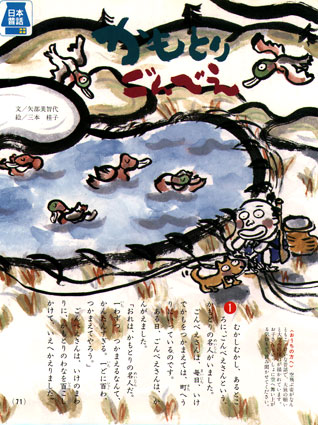 日本
昔話
かもとり
ごんべえ
文/矢部美智代
絵/三本 桂子
1
むかしむかし、あるとこ
ろに、ごんべえさんという
かもとりの名人がいました。
ごんべえさんは、毎日、いけ
でかもをつかまえては、町へう
りに
ある日、ごんべえさんは、か
んがえました。
「おれは、かもとりの名人だ。
一わずつつかまえるなんて、
かんたんすぎる。一どに百わ、
つかまえてやろう。」
ごんべえさんは、いけのまわ
りに、かもとりのわなを百こ
かけて、いえへかえりました。
(71)